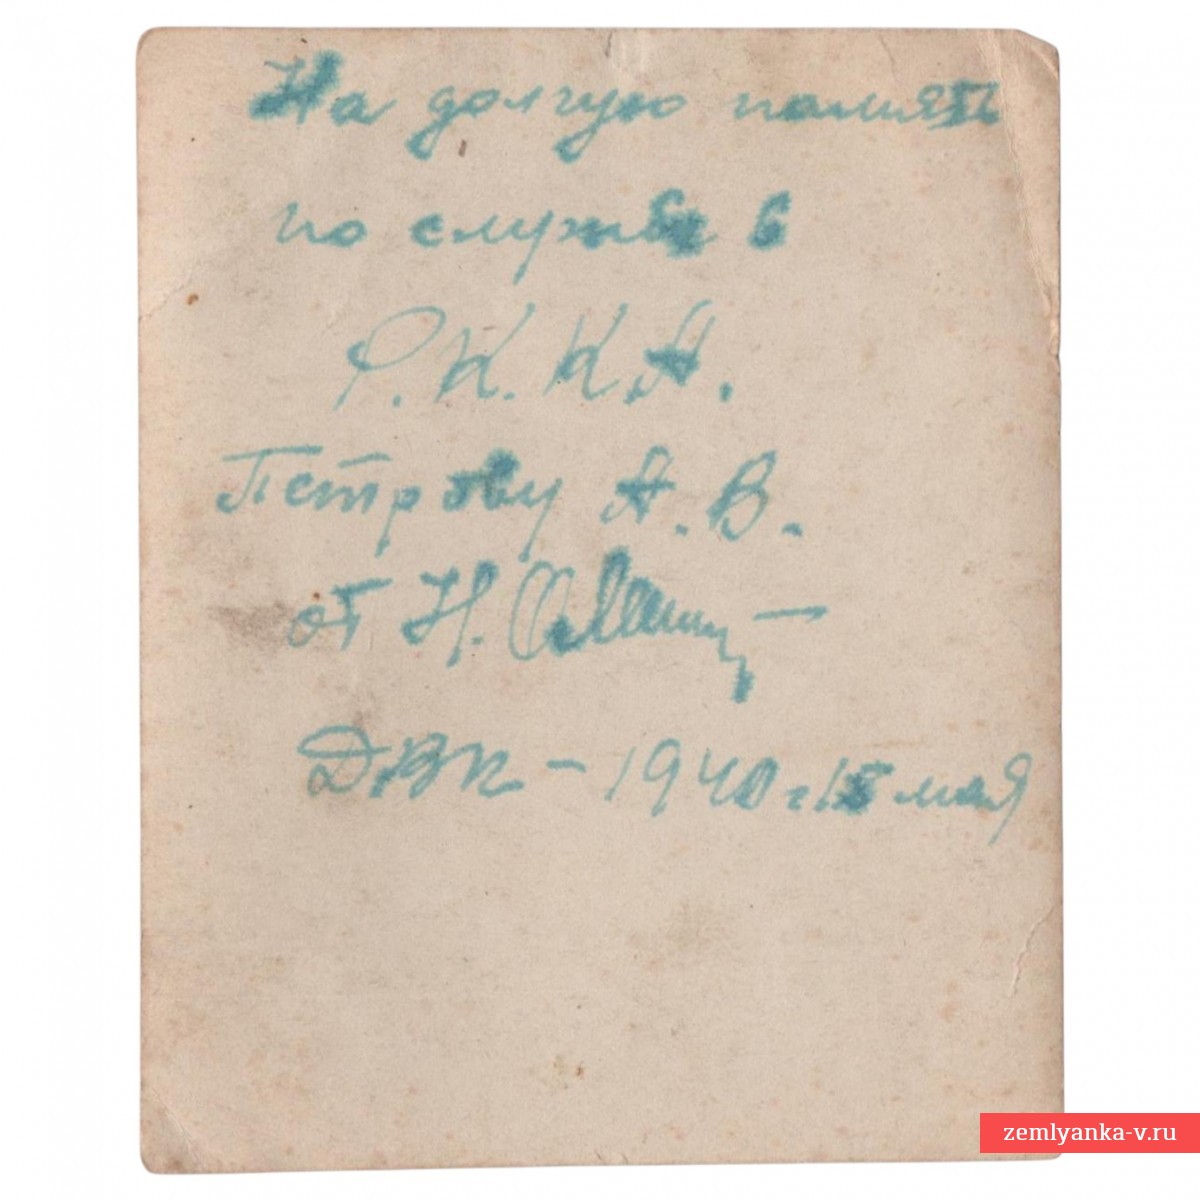 На долгую память
по службе в
Р.К.К.А.
Петрову А.В.
от Н.
ДВК - 1940 г 15 мая
zemlyanka-v.ru